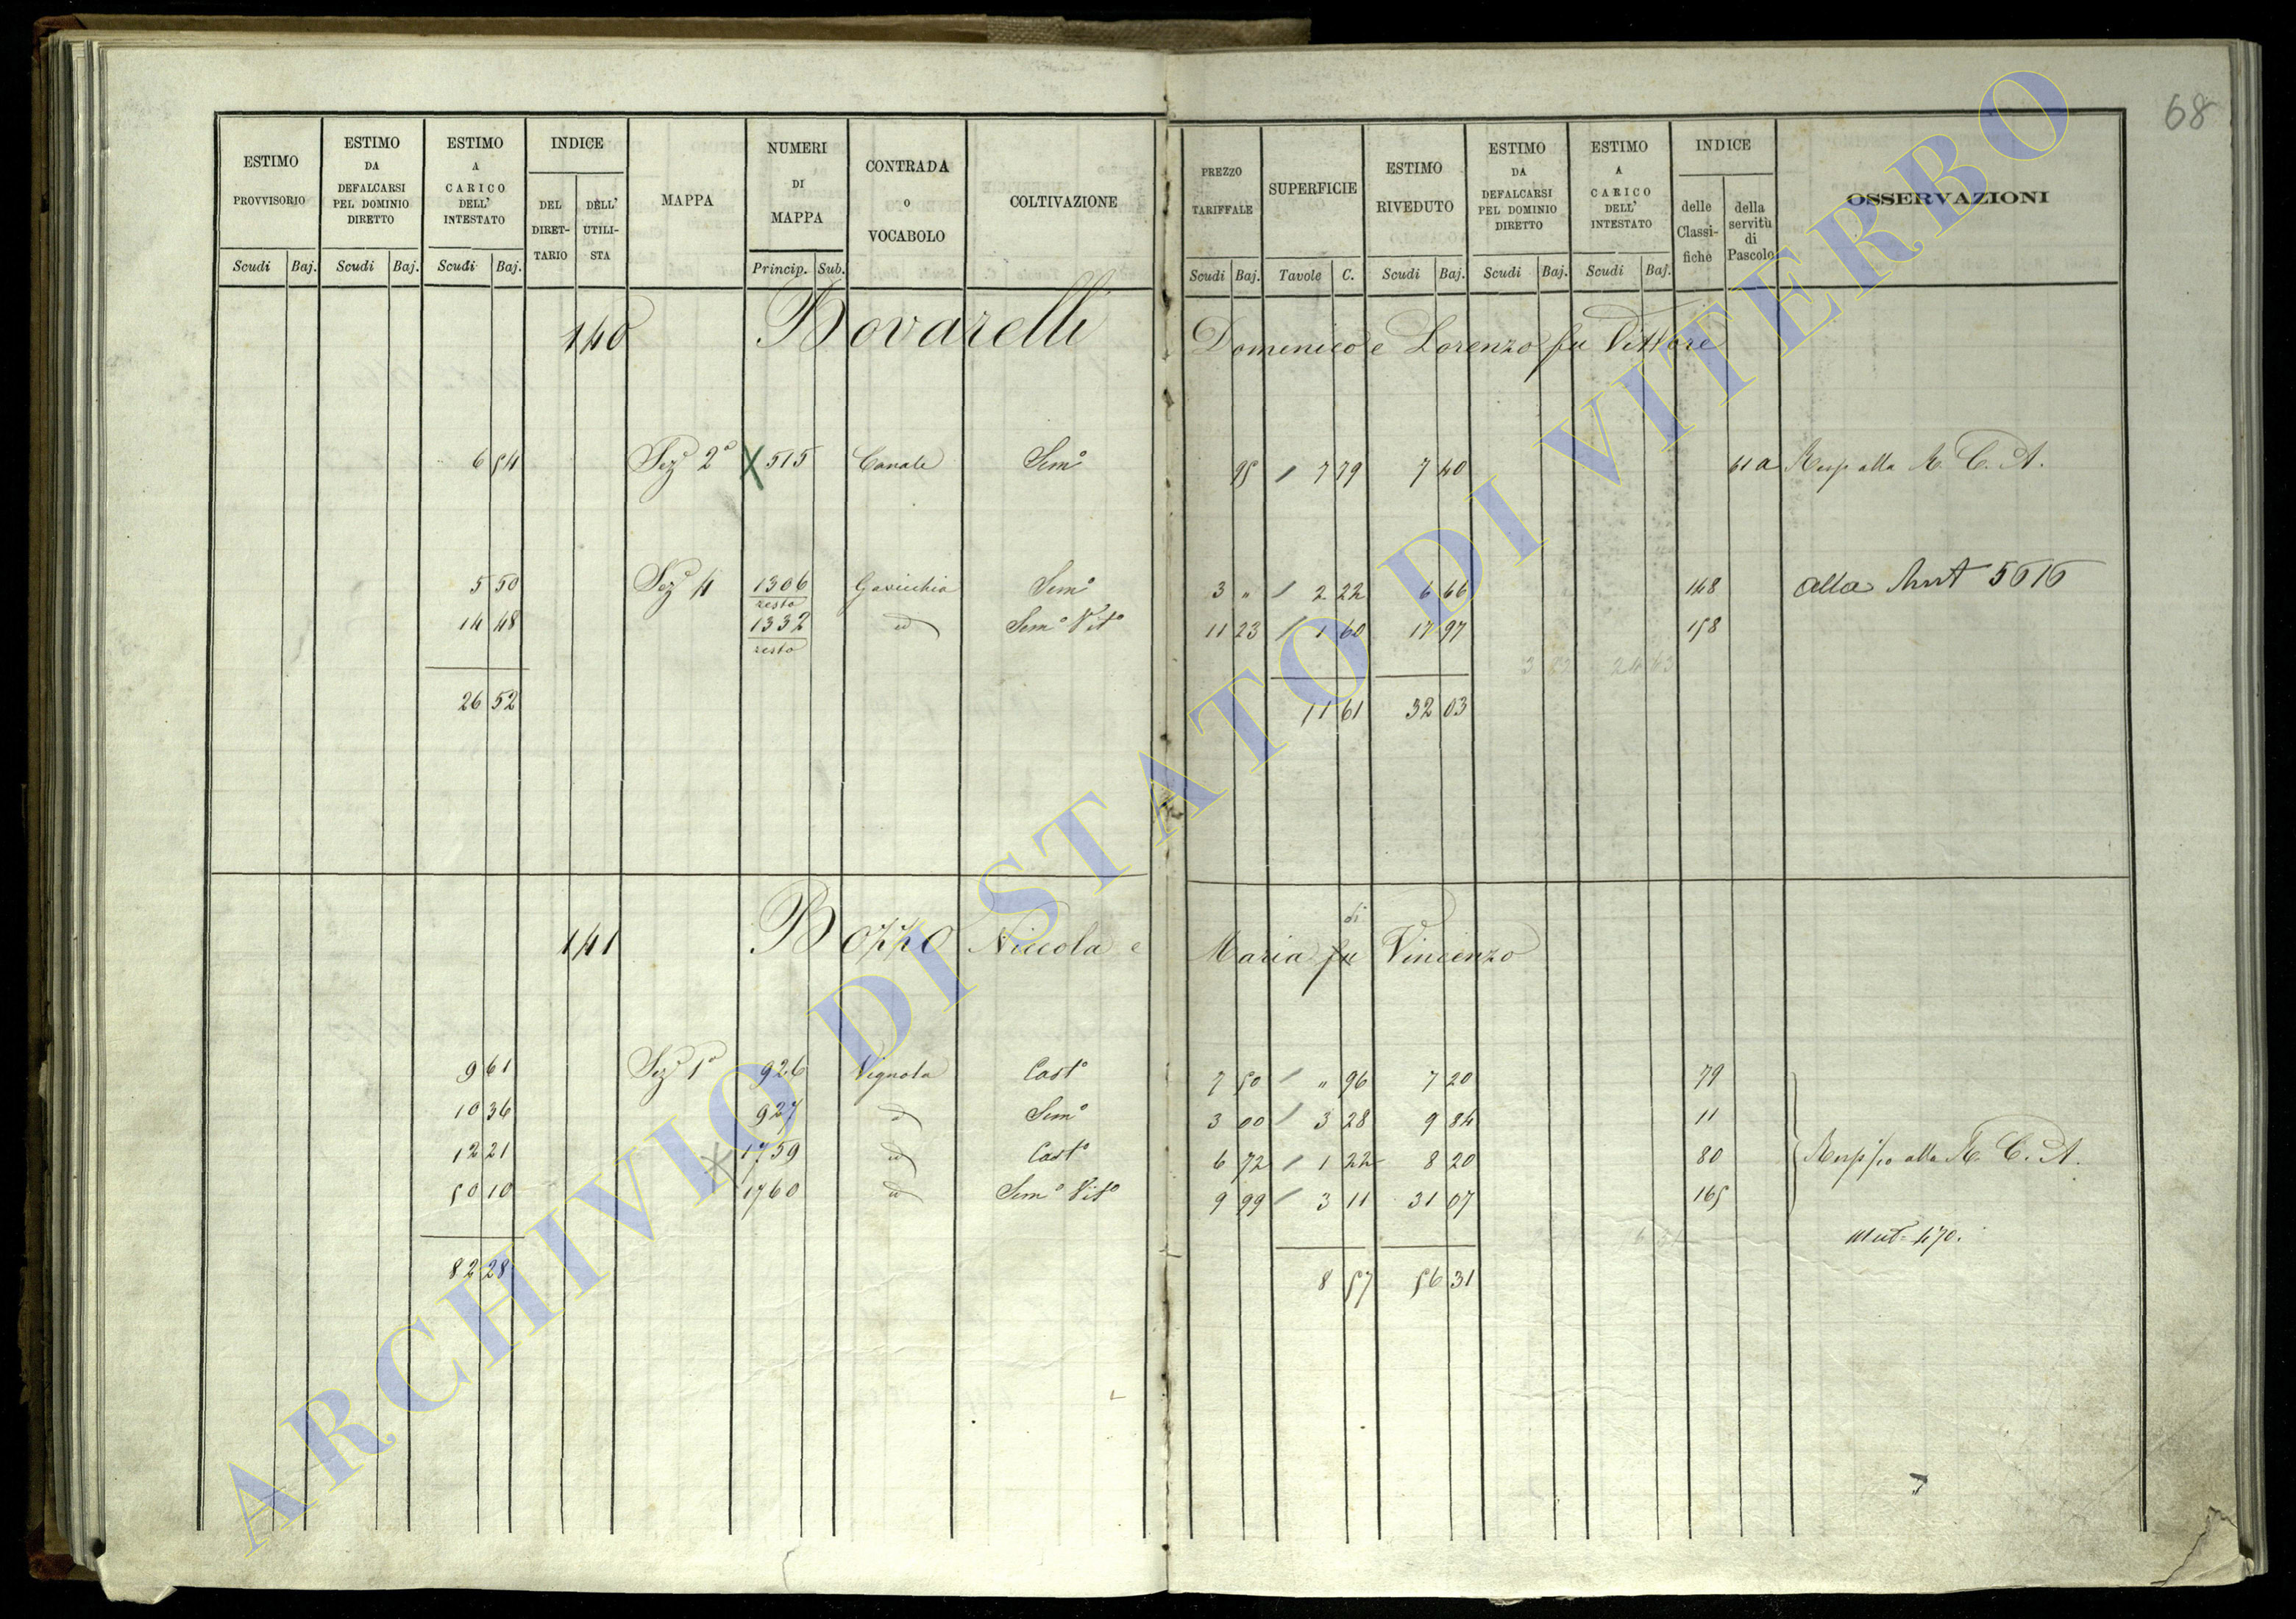 68
ESTIMO PROVVISORIO
Scudi Baj.
ESTIMO DA DEFALCARSI PEL DOMINIO DIRETTO
Scudi Baj.
ESTIMO A CARICO DELL' INTESTATO
Scudi Baj.
INDICE
DEL DIRET- TARIO
DELL' UTILI- STA
MAPPA
NUMERI DI MAPPA
Princip. Sub.
CONTRADA O VOCABOLO
COLTIVAZIONE
PREZZO TARIFFALE
Scudi Baj.
SUPERFICIE
Tavole C.
ESTIMO RIVEDUTO
Scudi Baj.
ESTIMO DA DEFALCARSI PEL DOMINIO DIRETTO
Scudi Baj.
ESTIMO A CARICO DELL' INTESTATO
Scudi Baj.
INDICE
delle Classi- fiche
della servitù di Pascolo
OSSERVAZIONI
140 Bovarelli Domenico e Lorenzo fu Vittore
6 54 Sez 2ª X 515 Canale Semº 95 / 7 79 7 40 61 a alla R. C. A.
5 50 Sez 4 1306 resto Gavicchia Semº 3 " / 2 22 6 66 148 alla Mut 5616
14 48 1332 resto id Semº Vitº 11 23 / 1 60 17 97 158
3 24 63
26 52 11 61 32 03
141 Bozzo Niccola e Maria fu di Vincenzo
9 61 Sez 1ª 926 Vignola Castº 7 50 / " 96 7 20 79
10 36 927 id Semº 3 00 / 3 28 9 84 11
12 21 X 1759 id Castº 6 72 / 1 22 8 20 80 alla R. C. A.
50 10 1760 id Semº Vitº 9 99 / 3 11 31 07 165
Mut. 470.
82 28 8 57 56 31
ARCHIVIO DI STATO DI VITERBO